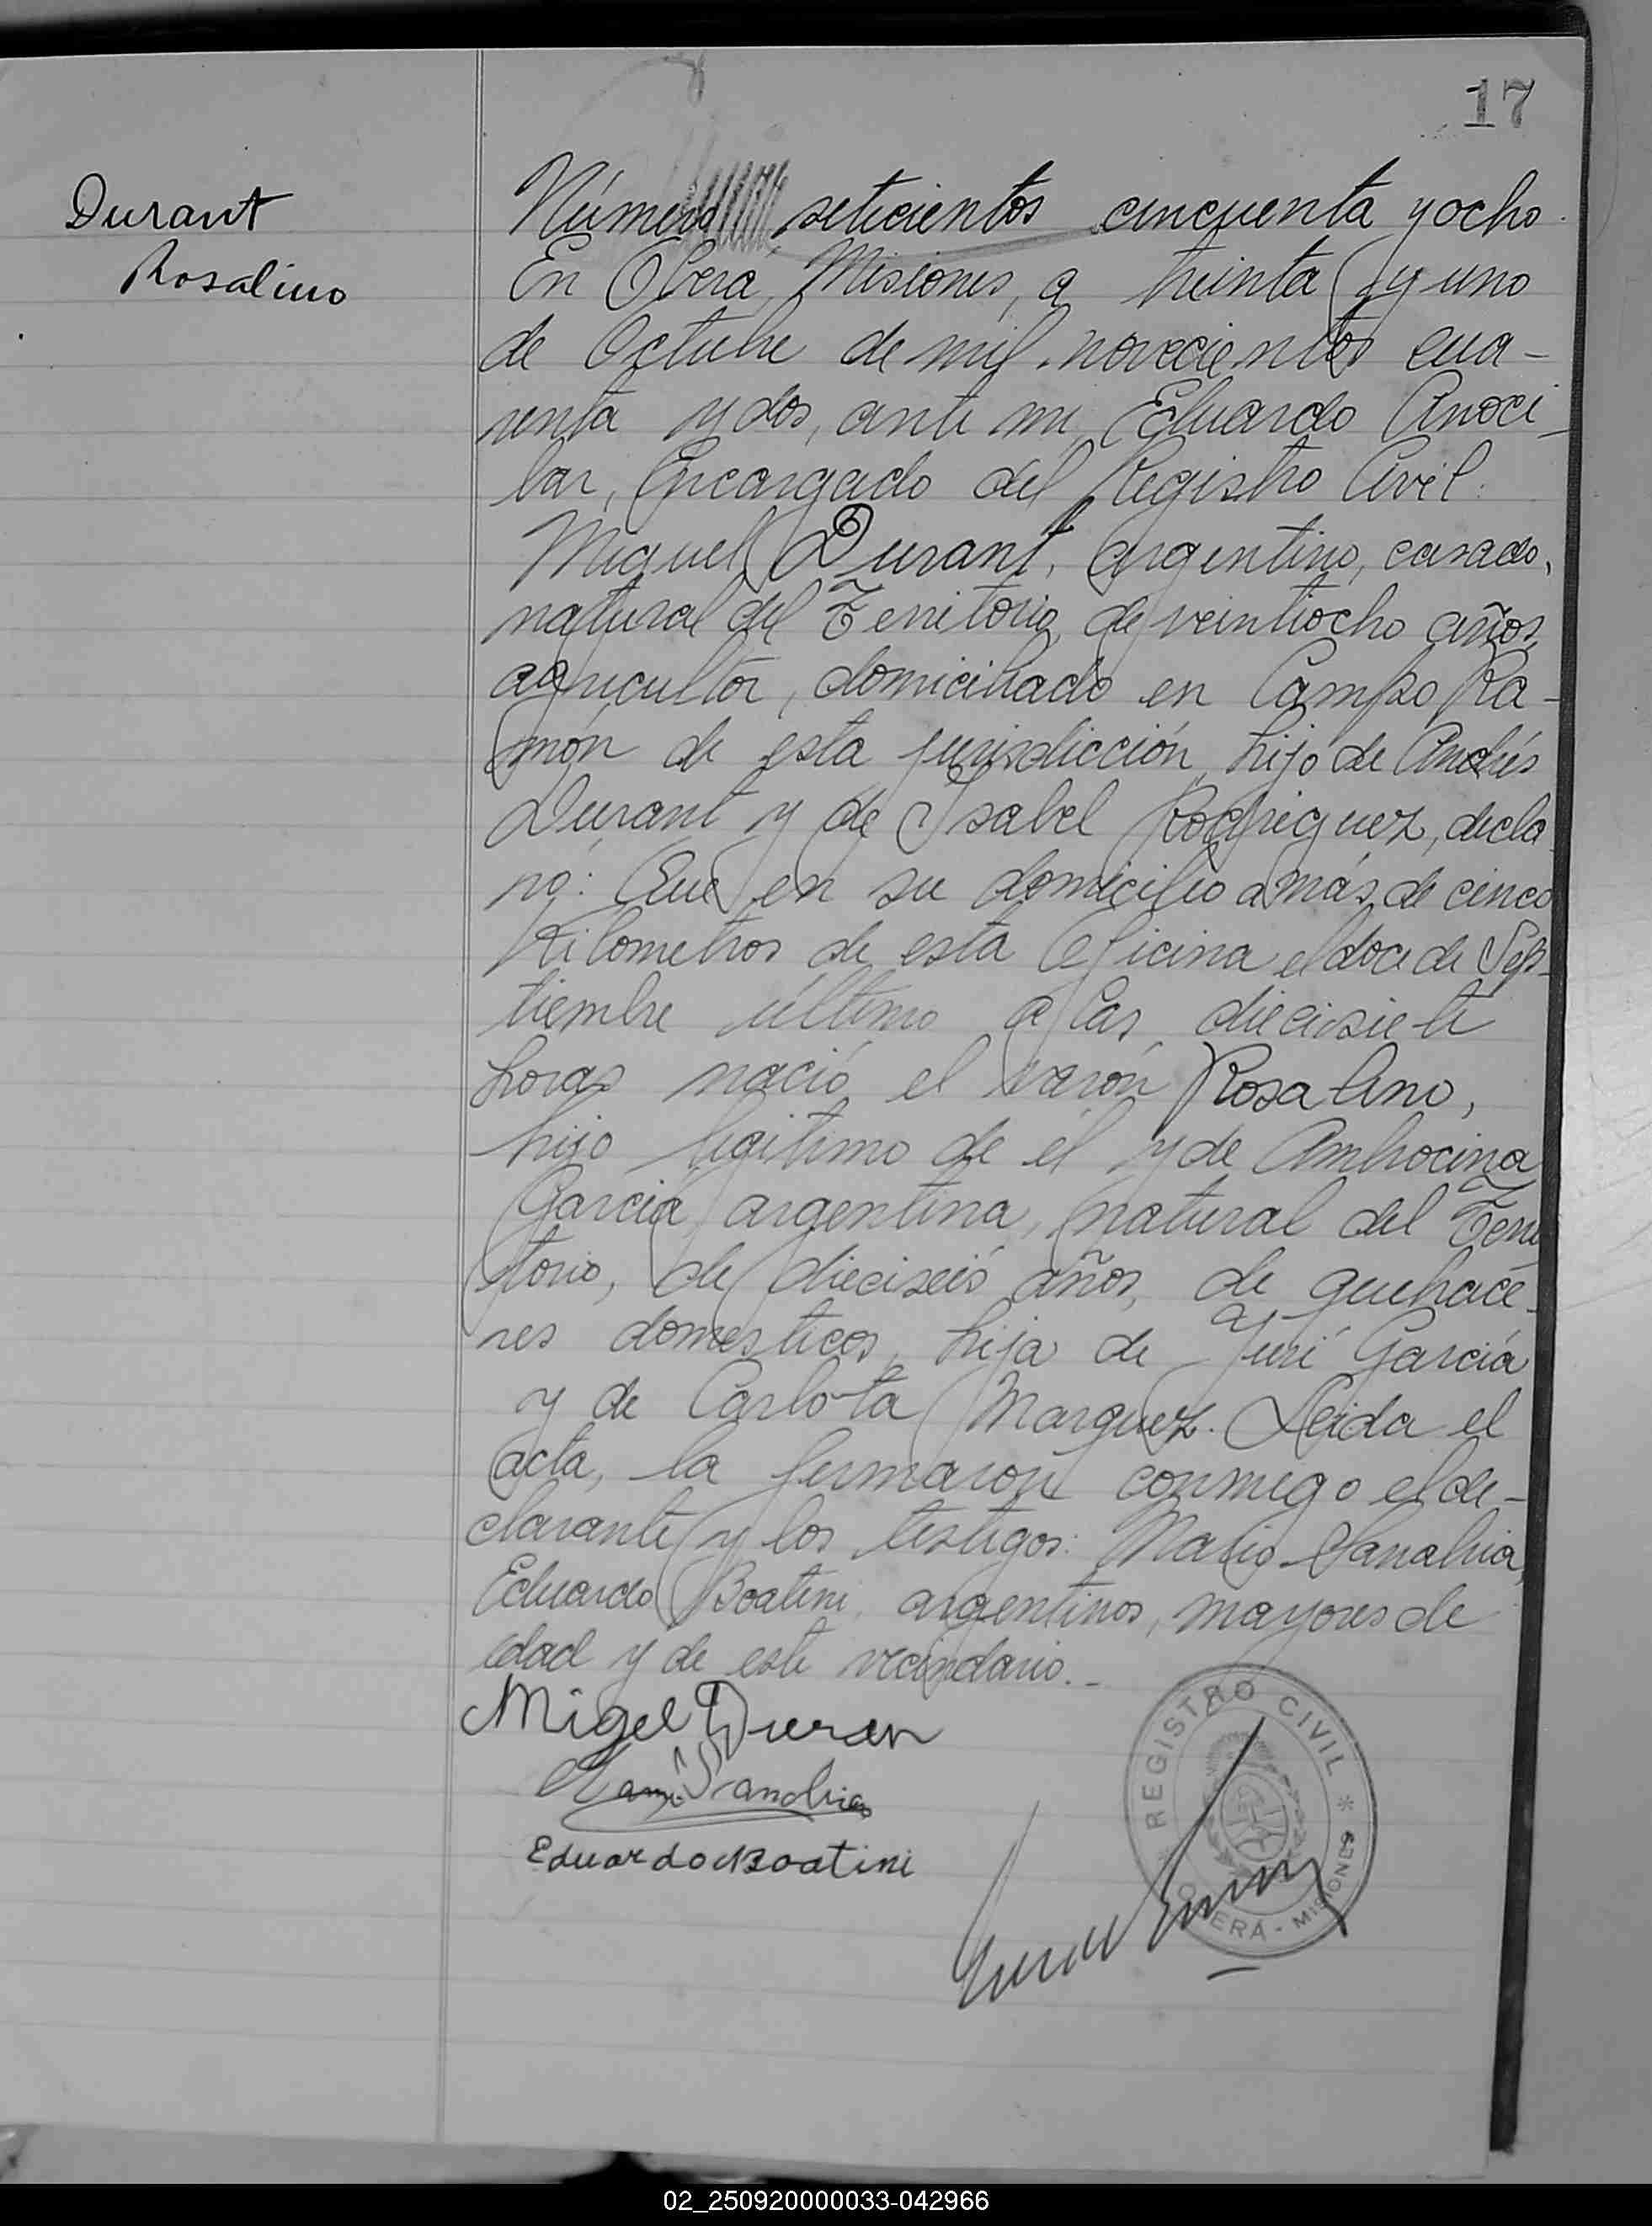 17
Durant
Rosalino
Número setecientos cincuenta y ocho.
En Oberá, Misiones, a treinta y uno
de Octubre de mil novecientos cua-
renta y dos, ante mi Eduardo Anoci-
bar, Encargado del Registro Civil:
Miguel Durant, argentino, casado,
natural del Territorio, de veintiocho años,
agricultor, domiciliado en Campo Ra-
món de esta jurisdicción, hijo de Andrés
Durant y de Isabel Rodriguez, decla
ró: Que en su domicilio a más de cinco
Kilometros de esta Oficina el doce de Sep-
tiembre último a las diecisiete
horas nació el varón Rosalino,
hijo legitimo de él y de Ambrocina
Garcia, argentina, natural del Terri
torio, de dieciseis años, de quehace-
res domesticos, hija de Juri Garcia
y de Carlota Marquez. Leida el
acta, la firmaron conmigo el de-
clarante y los testigos: Mario Sanabria,
Eduardo Boatini, argentinos, mayores de
edad y de este vecindario.-
Migel Duran
Sanabria
Eduardo Boatini
REGISTRO CIVIL
OBERÁ - MISIONES
02_250920000033-042966